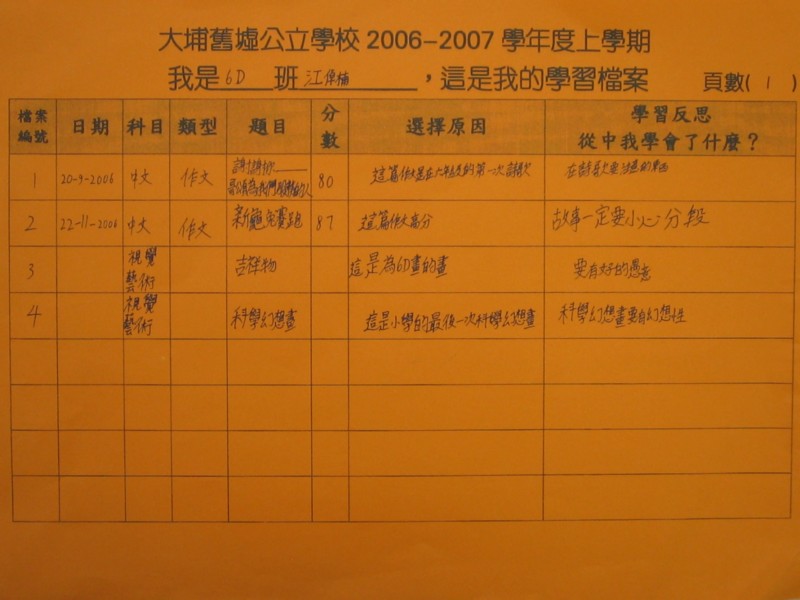 大埔舊墟公立學校 2006–2007 學年度上學期
我是 6D 班 江偉楠 ，這是我的學習檔案 頁數( 1 )
檔案編號 日期 科目 類型 題目 分數 選擇原因 學習反思 從中我學會了什麼？
1 20-9-2006 中文 作文 80 這篇作文是在六年級的第一次
2 22-11-2006 中文 作文 新龜兔賽跑 87 這篇作文高分 故事一定要小心分段
3 視覺藝術 吉祥物 這是為6D畫的畫 要有好的
4 視覺藝術 科學幻想畫 這是小學的最後一次科學幻想畫 科學幻想畫要有幻想性